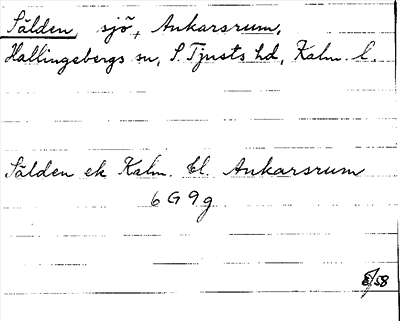 Sälden, sjö, Ankarsrum,
Hallingebergs sn, S. Tjusts hd, Kalm. l.
Sälden ek Kalm. bl. Ankarsrum
6 G 9 g
8/58